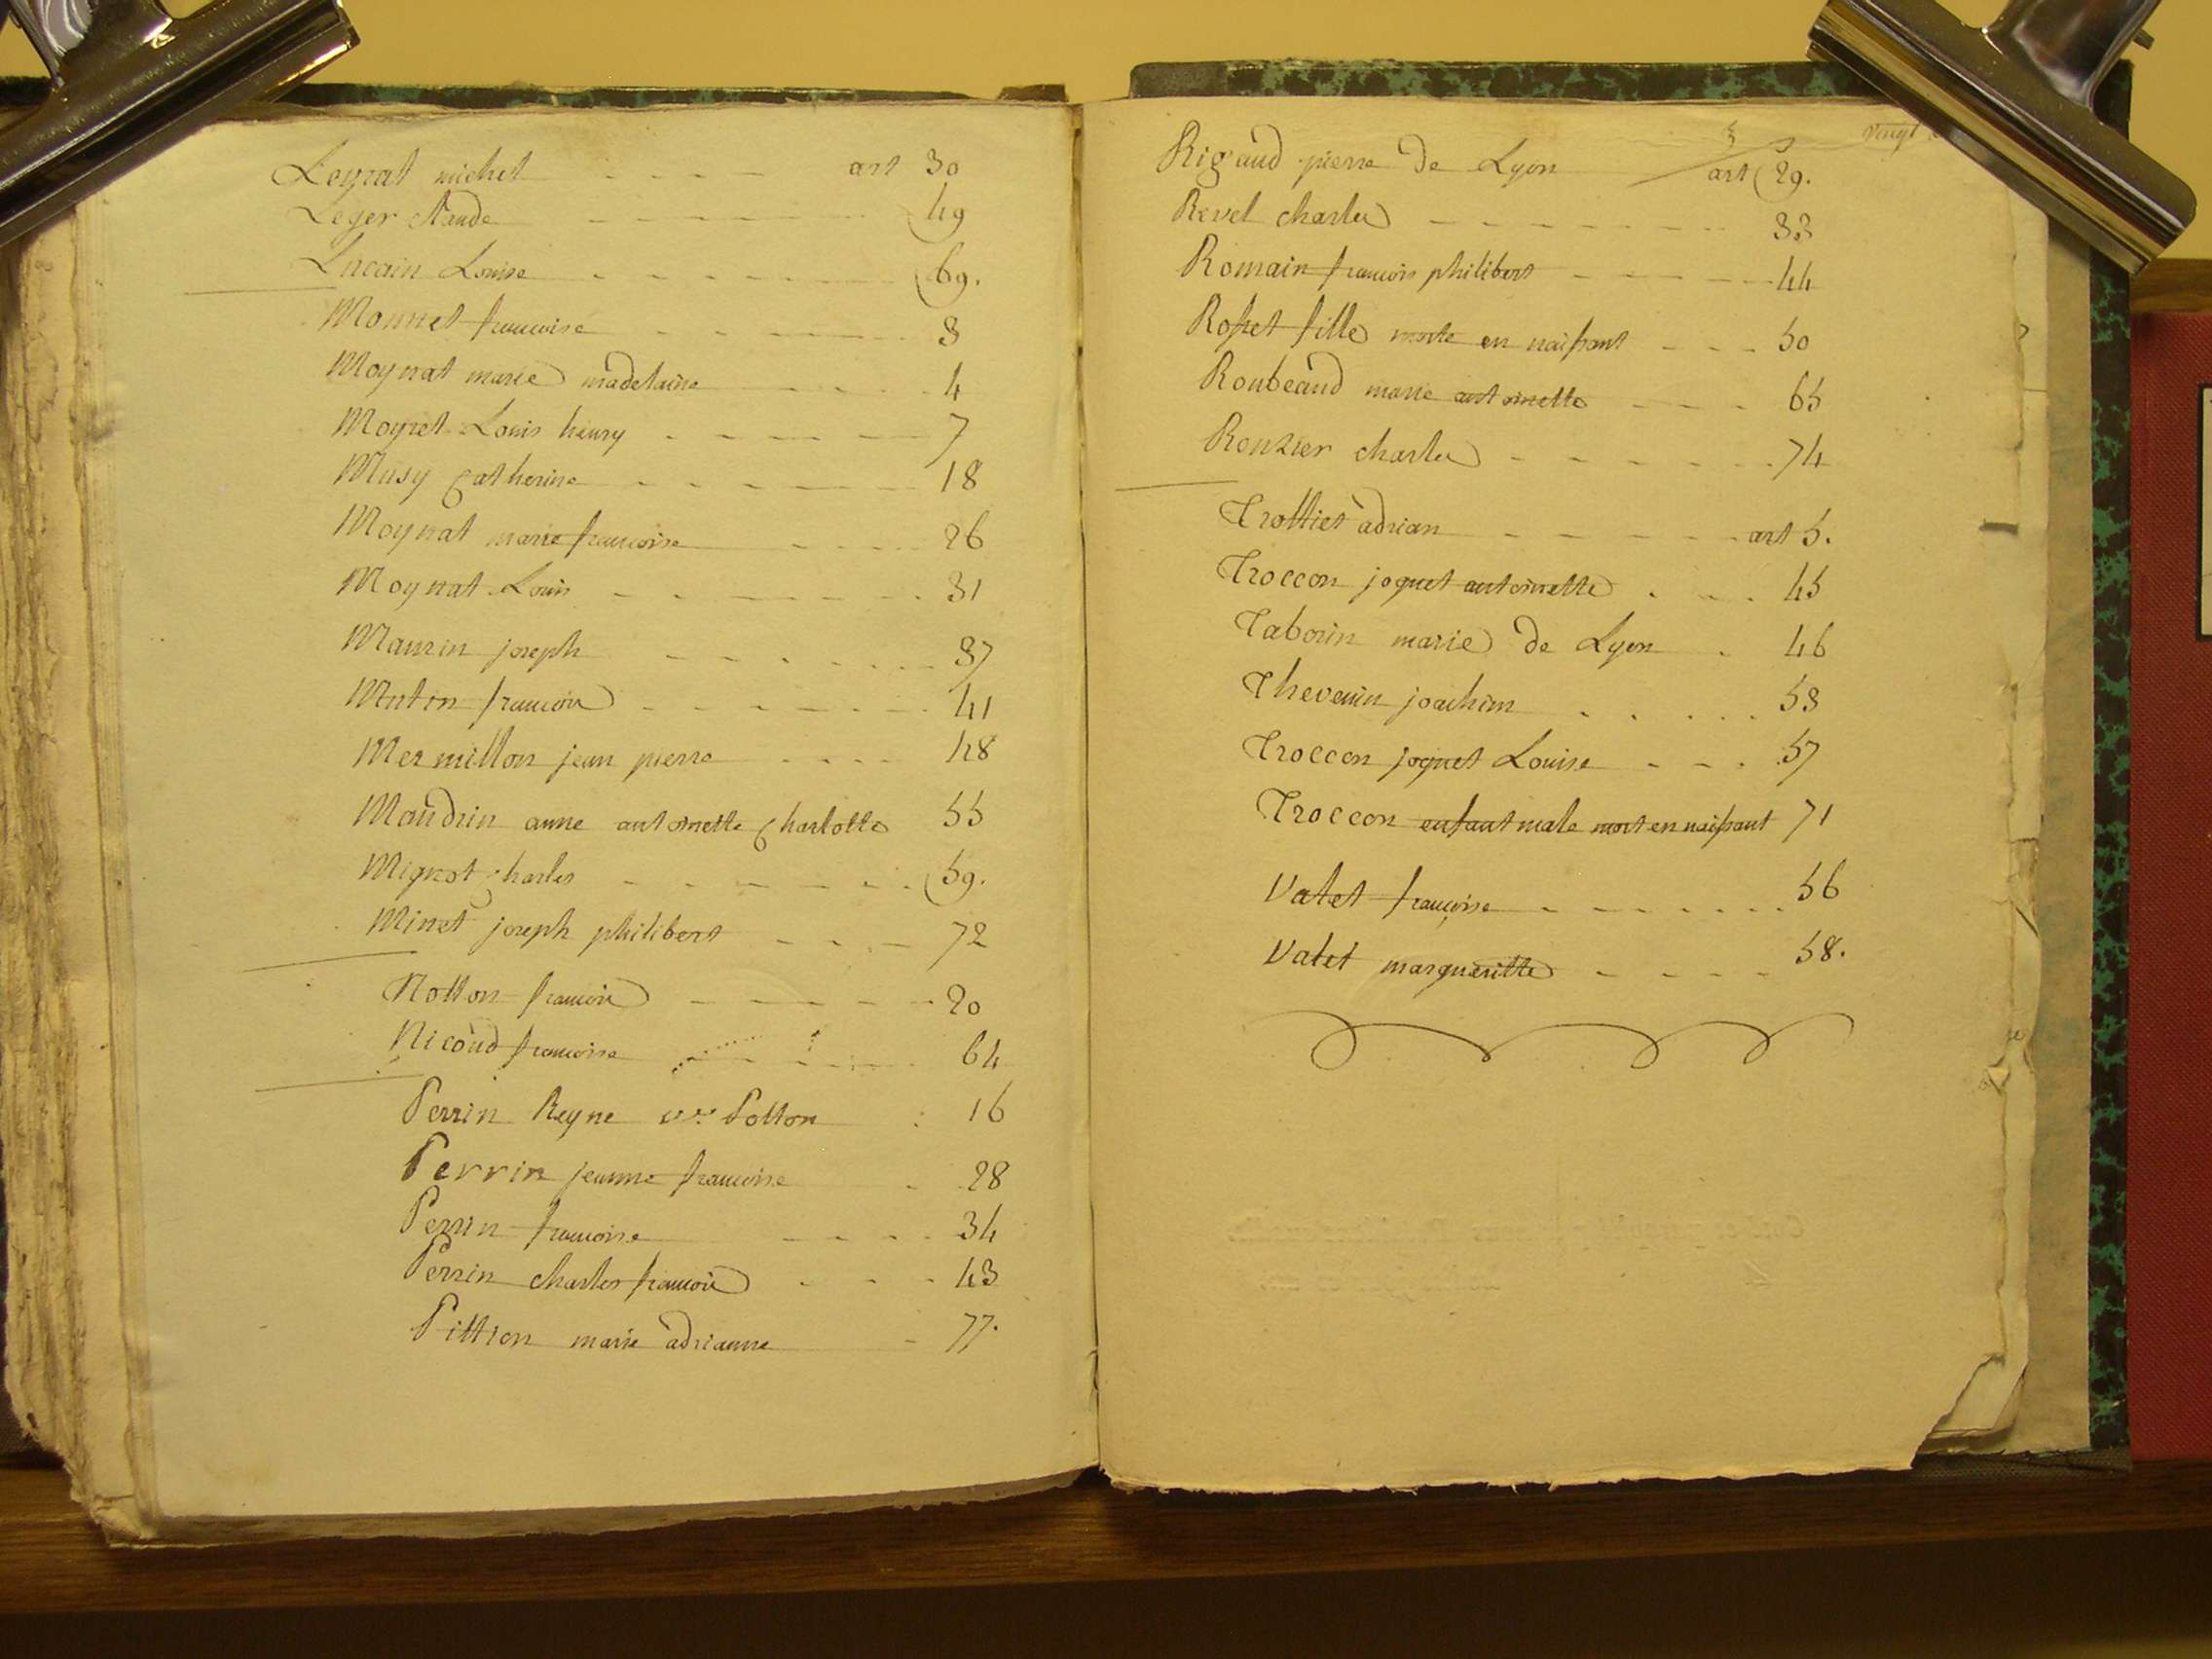 Leyrat michel - - - - art 30
Leger claude - - - - - 49
Lucain Louise - - - - - 69.
Monnet francoise - - - - 3
Moynat marie madelaine - - - 4
Moyret Louis henry - - - - 7
Musy Catherine - - - - - 18
Moynat marie francoise - - - - 26
Moynat Louis - - - - - 31
Maurin joseph - - - - - 37
Mutin francois - - - - - 41
Mermillon jean pierre - - - - 48
Maudrin anne antoinette Charlotte 55
Mignot Charles - - - - - 59.
Minet joseph philibert - - - - 72
Notton francois - - - - - 20
Nicoud francoise - - - - 64
Perrin Reyne vve Potton : 16
Perrin jeanne francoise - 28
Perrin francoise - - - - 34
Perrin charles francois - - - 43
Pittion marie adrianne - 77.
vingt
Rigaud pierre de Lyon art 29.
Revel charles - - - - - 33
Romain francois philibert - - - - 44
Rosset fille morte en naissant - - - 50
Roubeaud marie antoinette - - - 65
Ronzier charles - - - - - 74
Trottier adrian - - - - - art 5.
Troccon joquet antoinette . - . 45
Taborin marie de Lyon . 46
Thevenin joachim . . . . . 53
Troccon joquet Louise - - - 57
Troccon enfant male mort en naissant 71
Valet françoise - - - - - 56
Valet margueritte - - - - 58.